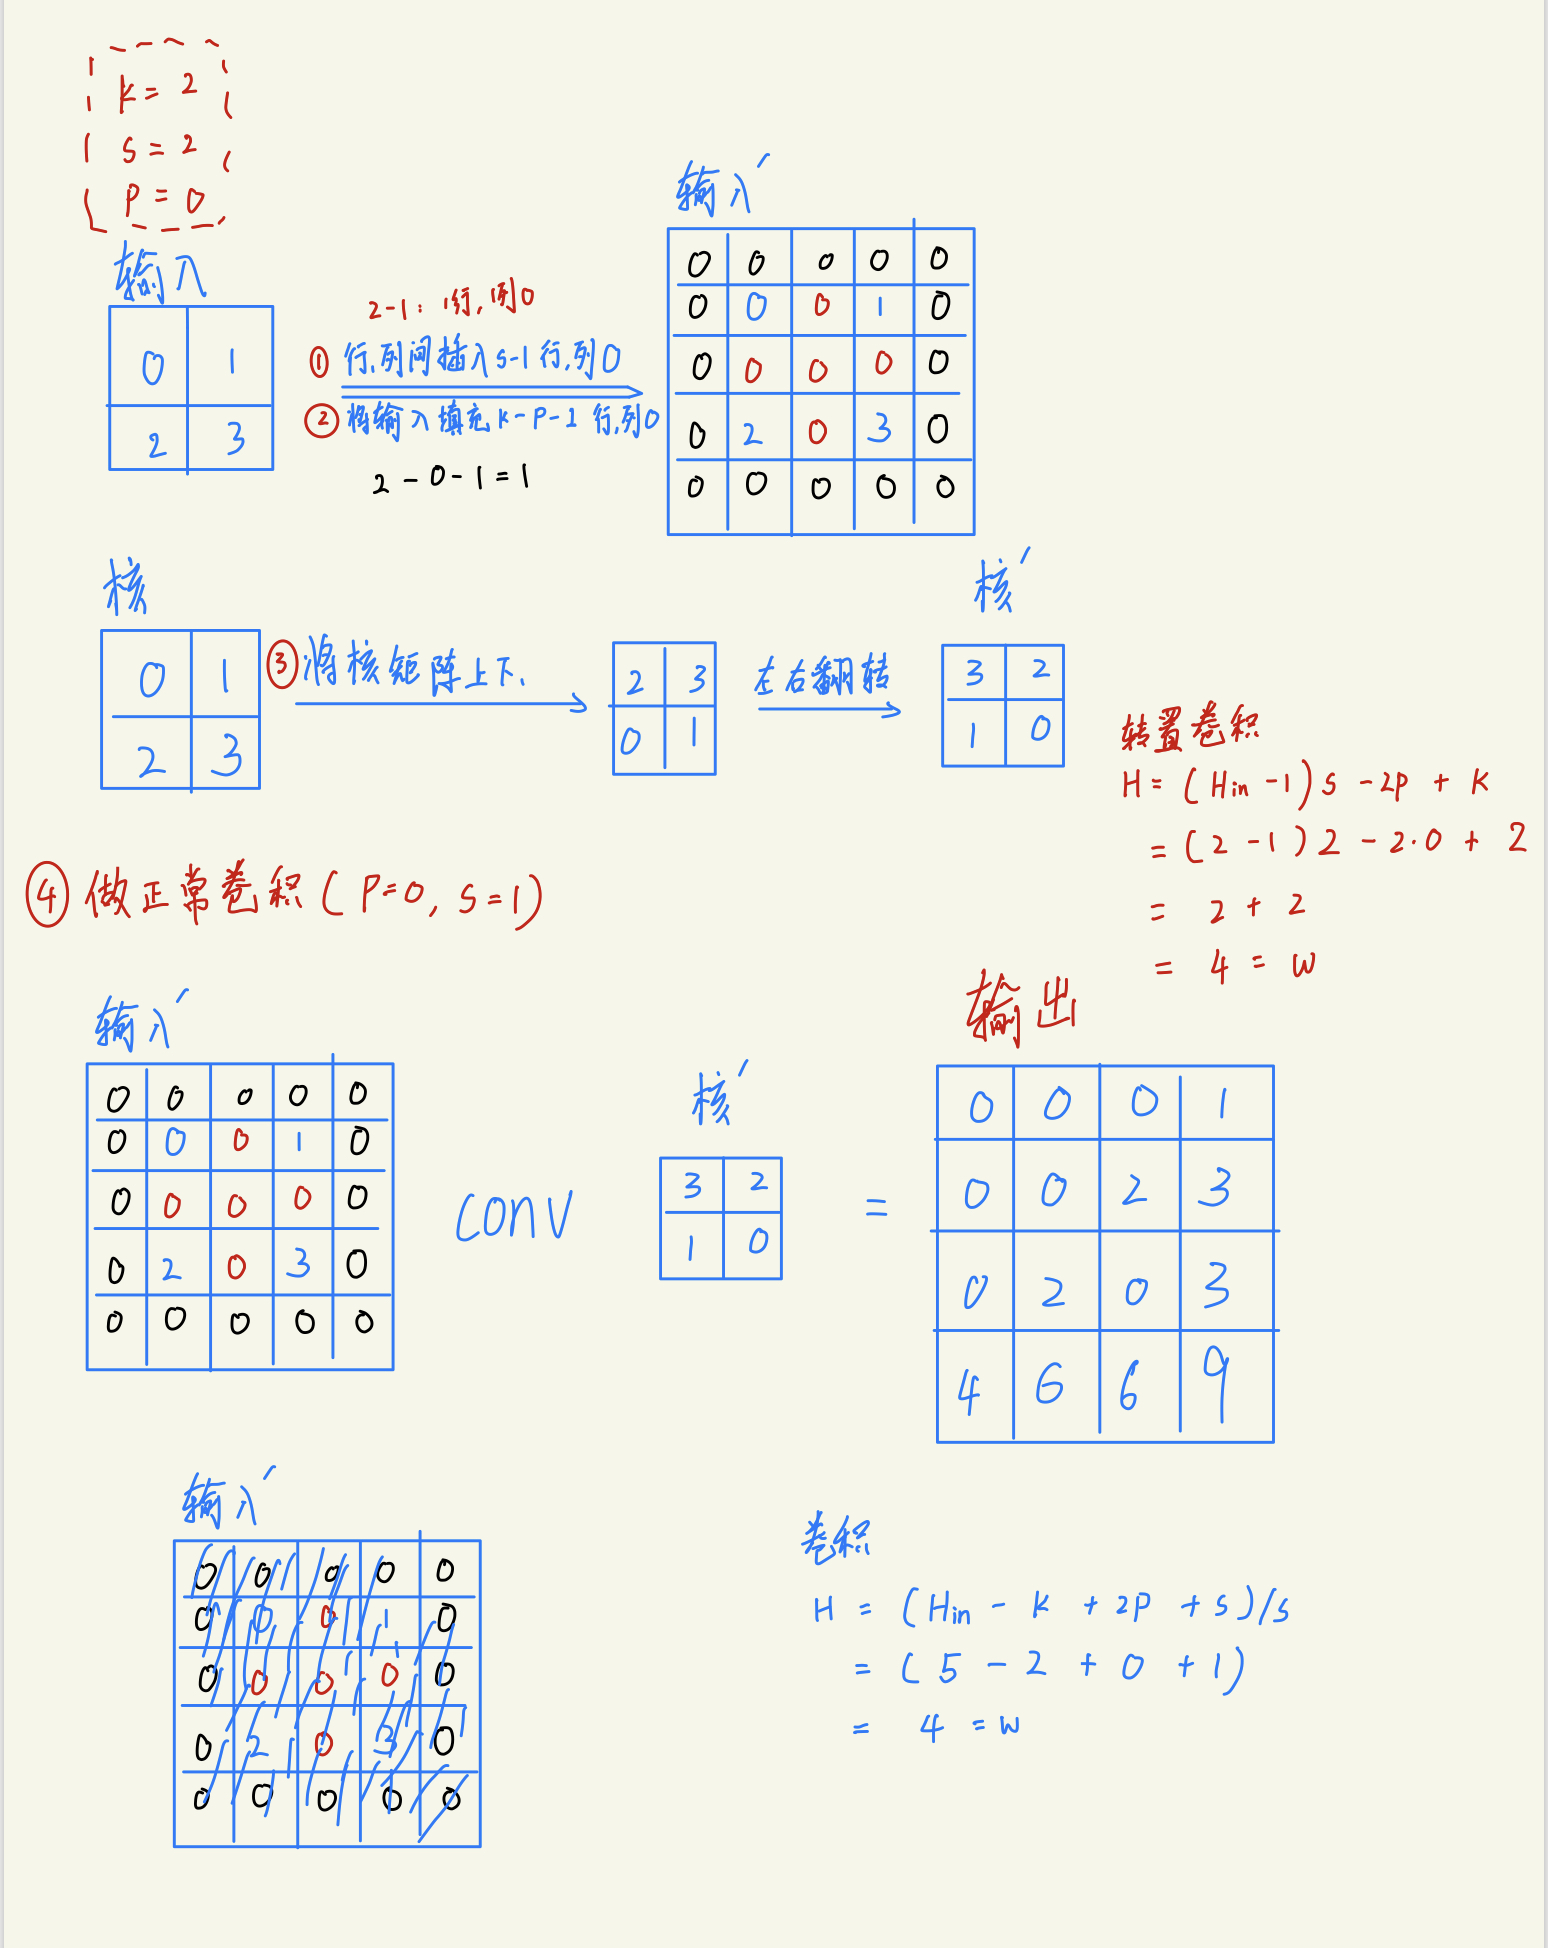 K = 2
S = 2
P = 0
输入
0 1
2 3
2-1: 1行,列0
① 行,列间插入s-1行,列0
② 将输入填充K-P-1行,列0
2-0-1=1
输入'
0 0 0 0 0
0 0 0 1 0
0 0 0 0 0
0 2 0 3 0
0 0 0 0 0
核
0 1
2 3
③ 将核矩阵上下、
2 3
0 1
左右翻转
核'
3 2
1 0
转置卷积
H = (Hin -1)S -2P + K
= (2 -1)2 -2·0 + 2
= 2 + 2
= 4 = W
④ 做正常卷积(P=0, S=1)
输入'
0 0 0 0 0
0 0 0 1 0
0 0 0 0 0
0 2 0 3 0
0 0 0 0 0
CONV
核'
3 2
1 0
=
输出
0 0 0 1
0 0 2 3
0 2 0 3
4 6 6 9
输入'
0 0 0 0 0
0 0 0 1 0
0 0 0 0 0
0 2 0 3 0
0 0 0 0 0
卷积
H = (Hin - K + 2P + S)/S
= (5 - 2 + 0 + 1)
= 4 = W